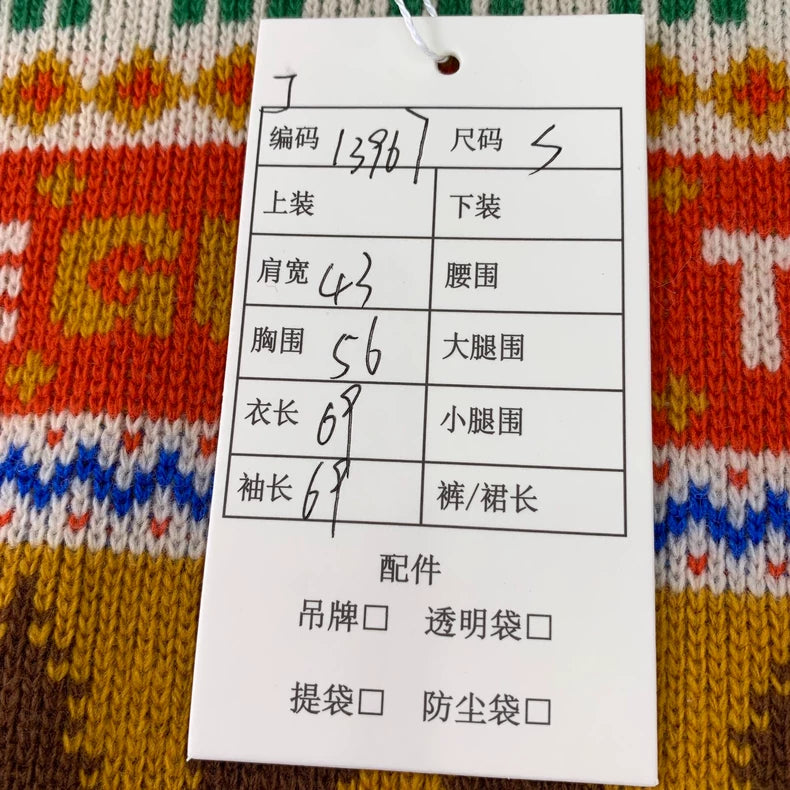 编码 13967 尺码 S
上装 下装
肩宽 43 腰围
胸围 56 大腿围
衣长 69 小腿围
袖长 69 裤/裙长
配件
吊牌□ 透明袋□
提袋□ 防尘袋□